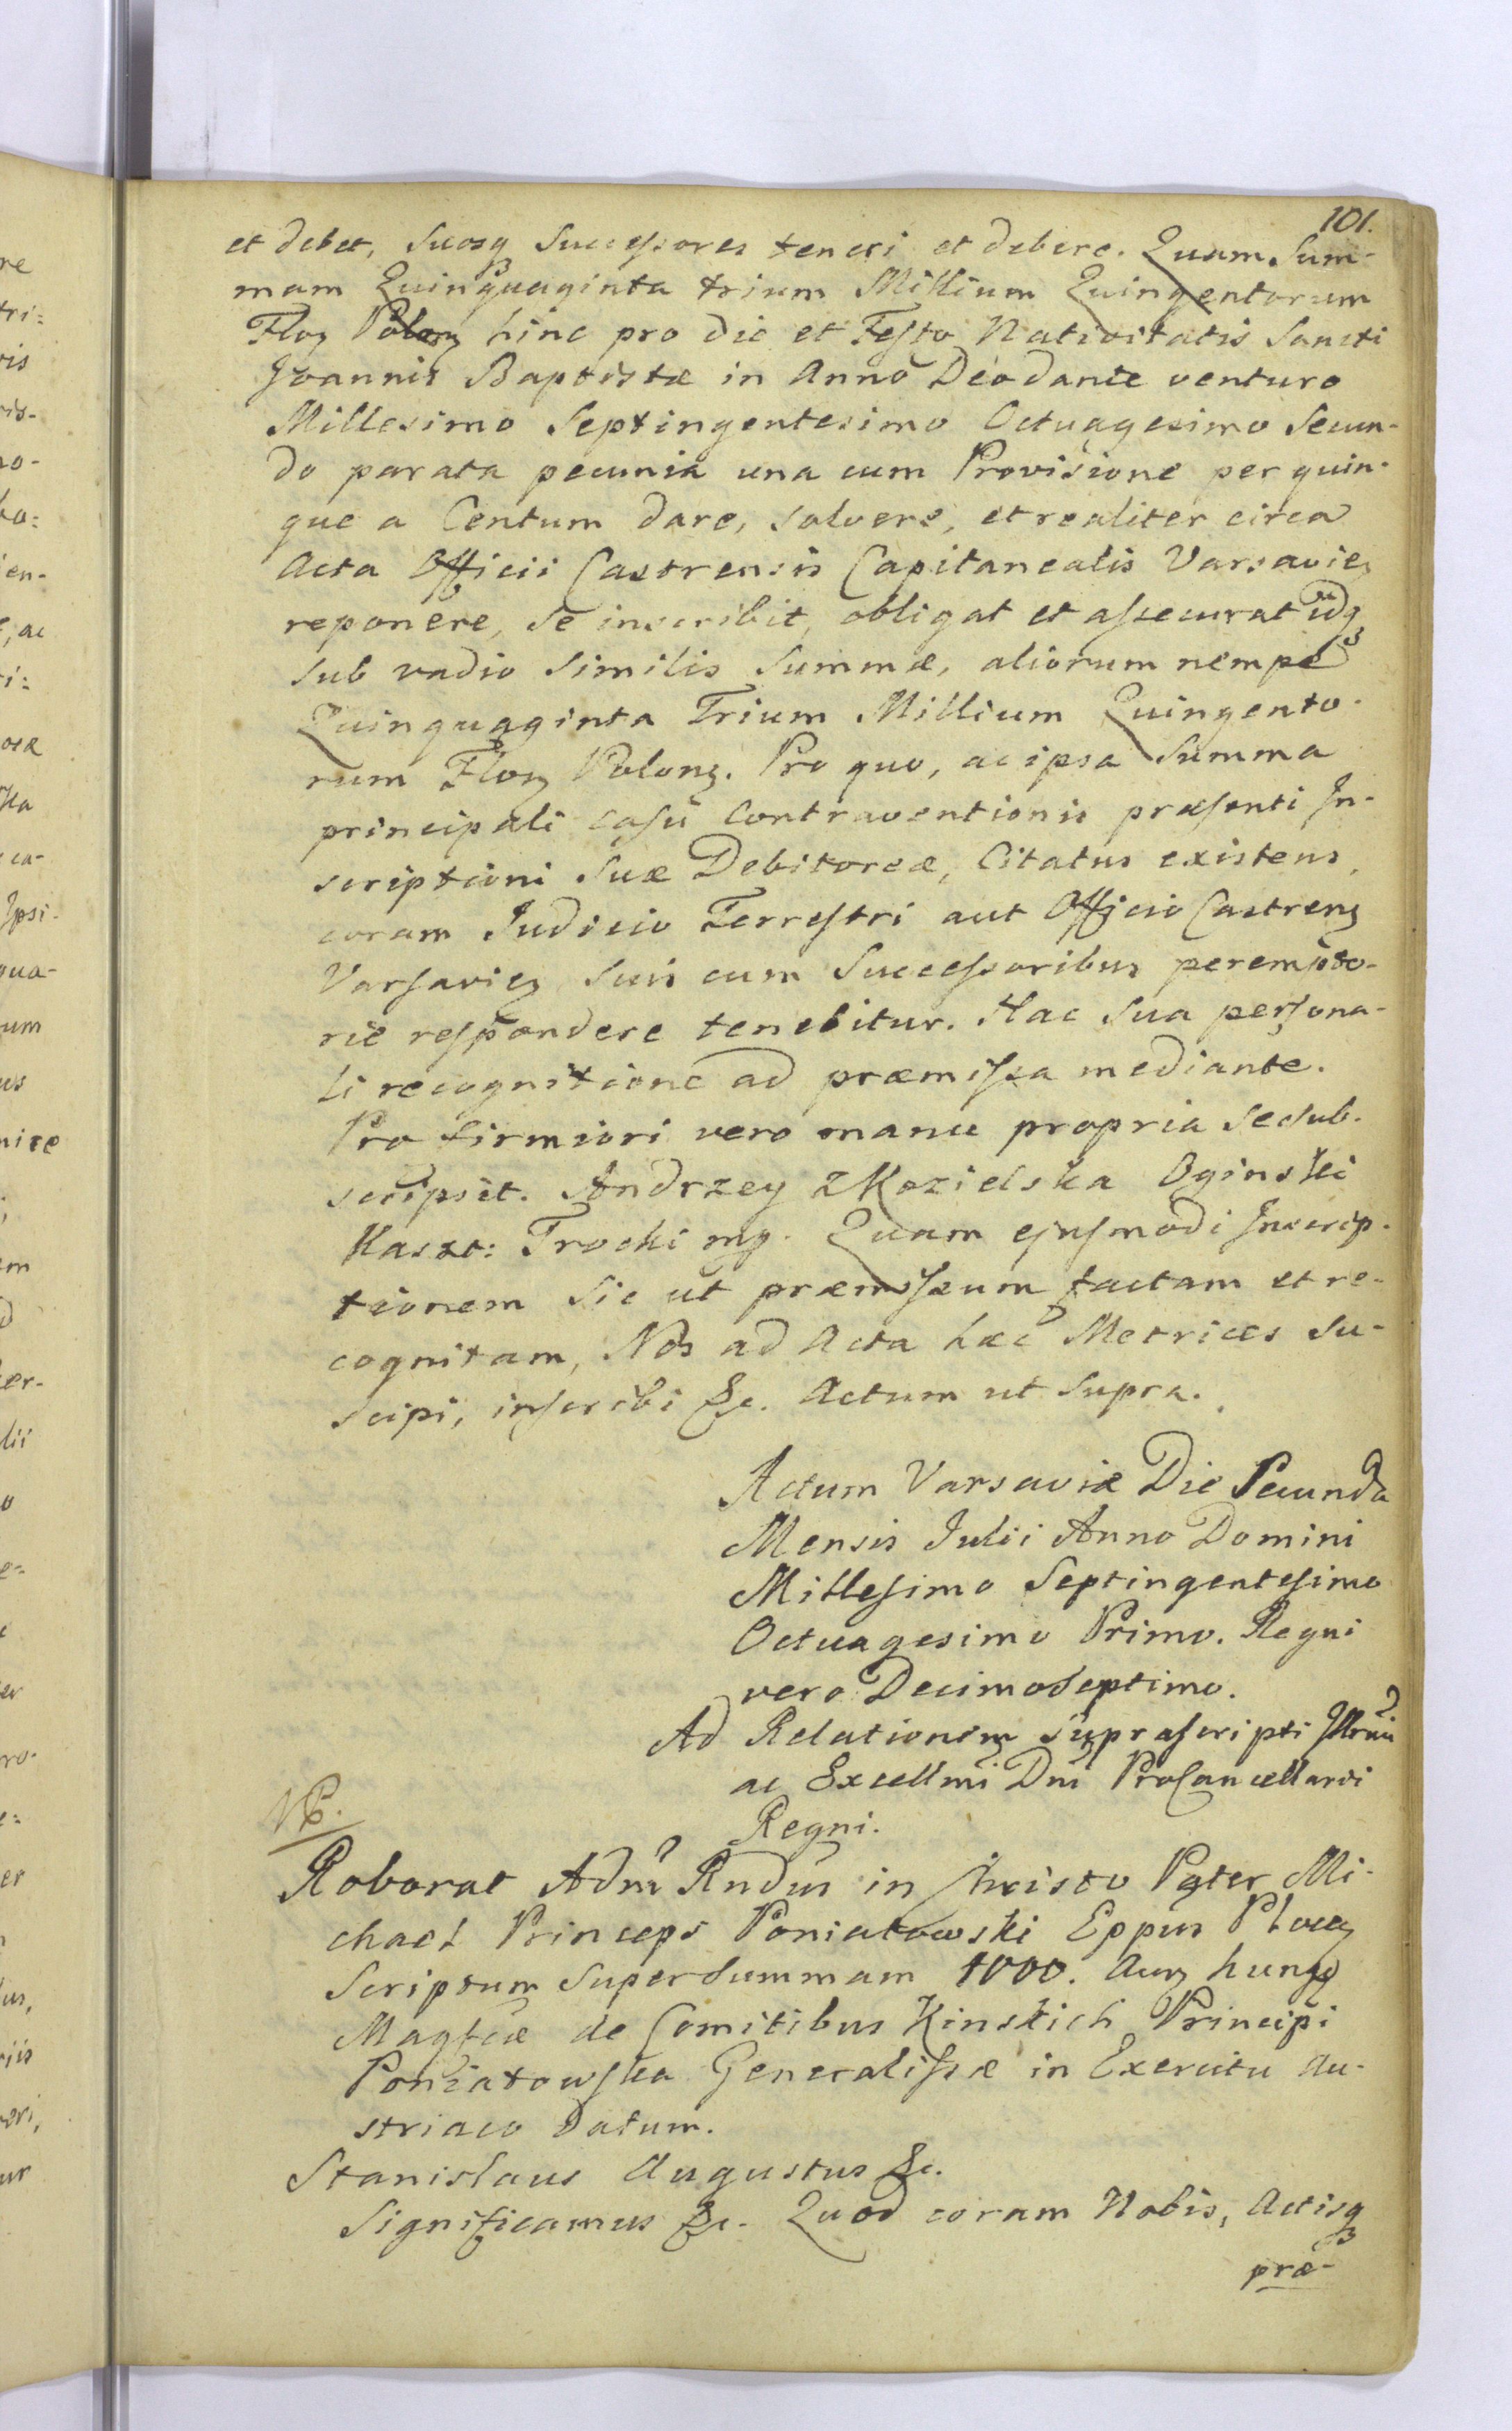 101.
et debet, suosq3 Successores teneri et debere. Quam Sum-
mam Quinquaginta trium Millium Quingentorum
Floꝝ Poloꝝ hinc pro die et Festo Nativitatis Sancti
Joannis Baptistæ in Anno Deo dante venturo
Millesimo Septingentesimo Octuagesimo Secun-
do parata pecunia una cum Provisione per quin-
que a Centum dare, solvere, et realiter circa
Acta Officii Castrensis Capitanealis Varsavieꝝ
reponere, se inscribit, obligat et assecurat idq3
sub vadio similis Summæ, aliorum nempe
Quinquaginta Trium Millium Quingento-
rum Floꝝ Polonꝝ. Pro quo, ac ipsa Summa
principali casu Contraventionis præsenti In-
scriptioni Suæ Debitoreæ, Citatus existens,
coram Judicio Terrestri aut Officio Castrenꝝ
Varsavieꝝ suis cum Successoribus perempto-
rie respondere tenebitur. Hac sua persona-
li recognitione ad præmissa mediante.
Pro firmiori vero manu propria se sub-
scripsit. Andrzey z Kozielska Oginski
Kaszt: Trocki mp. Quam ejusmodi Inscrip-
tionem sic ut præmissum factam et re-
cognitam, Nos ad Acta hæc Metrices su-
scipi, inscribi &c. Actum ut supra.
Actum Varsaviæ Die Secunda
Mensis Julii Anno Domini
Millesimo Septingentesimo
Octuagesimo Primo. Regni
vero Decimo Septimo.
Ad Relationem suprascripti Illrmi
ac Excellmi Dni ProCancellarii
Regni.
NB.
Roborat Adm Rndus in Christo Pater Mi-
chael Princeps Poniatowski Eppus Plocꝝ
Scriptum super summam 1000. Aurꝝ hungꝝ
Magficæ de Comitibus Kinskich Principi
Poniatowska Generalissæ in Exercitu Au-
striaco datum.
Stanislaus Augustus &c.
Significamus &c. Quod coram Nobis, Actisq3
præ-